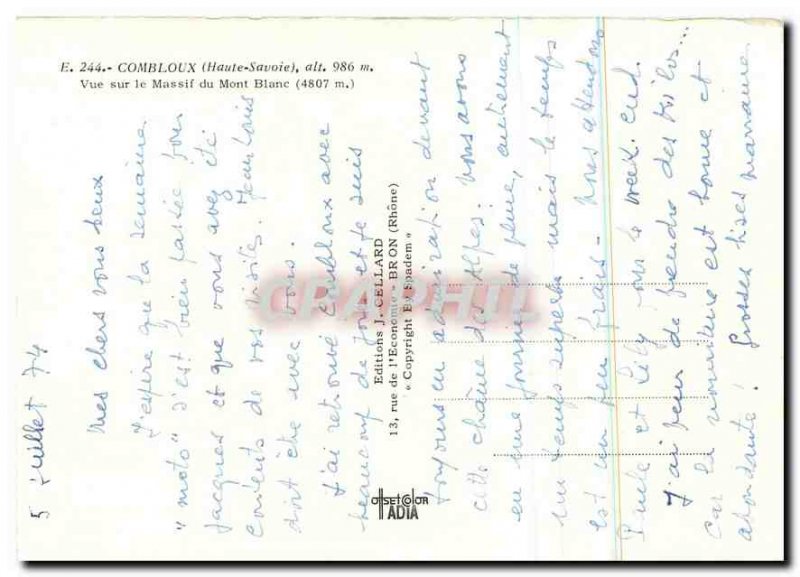 E. 244.- COMBLOUX (Haute-Savoie), alt. 986 m.
Vue sur le Massif du Mont Blanc (4807 m.)
5 juillet 74
Mes chers vous deux
J'espère que la semaine
"moto" s'est bien passée pour
Jacques et que vous avez été
contents de vos visites. Jean Louis
doit être avec vous.
J'ai retrouvé Combloux avec
beaucoup de joie et je suis
toujours en admiration devant
cette chaîne des Alpes. Nous avons
eu une journée de pluie, autrement
un temps superbe mais le temps
est un peu frais - Nous attendons
et Lily pour le week. end.
J'ai peur de prendre des kilos...
car la nourriture est bonne et
abondante! Grosses bises marraine
Editions J. CELLARD
13, rue de l'Economie - BRON (Rhône)
« Copyright By Spadem »
OFFSETCOLOR
IADIA
CRAPHIL.COM